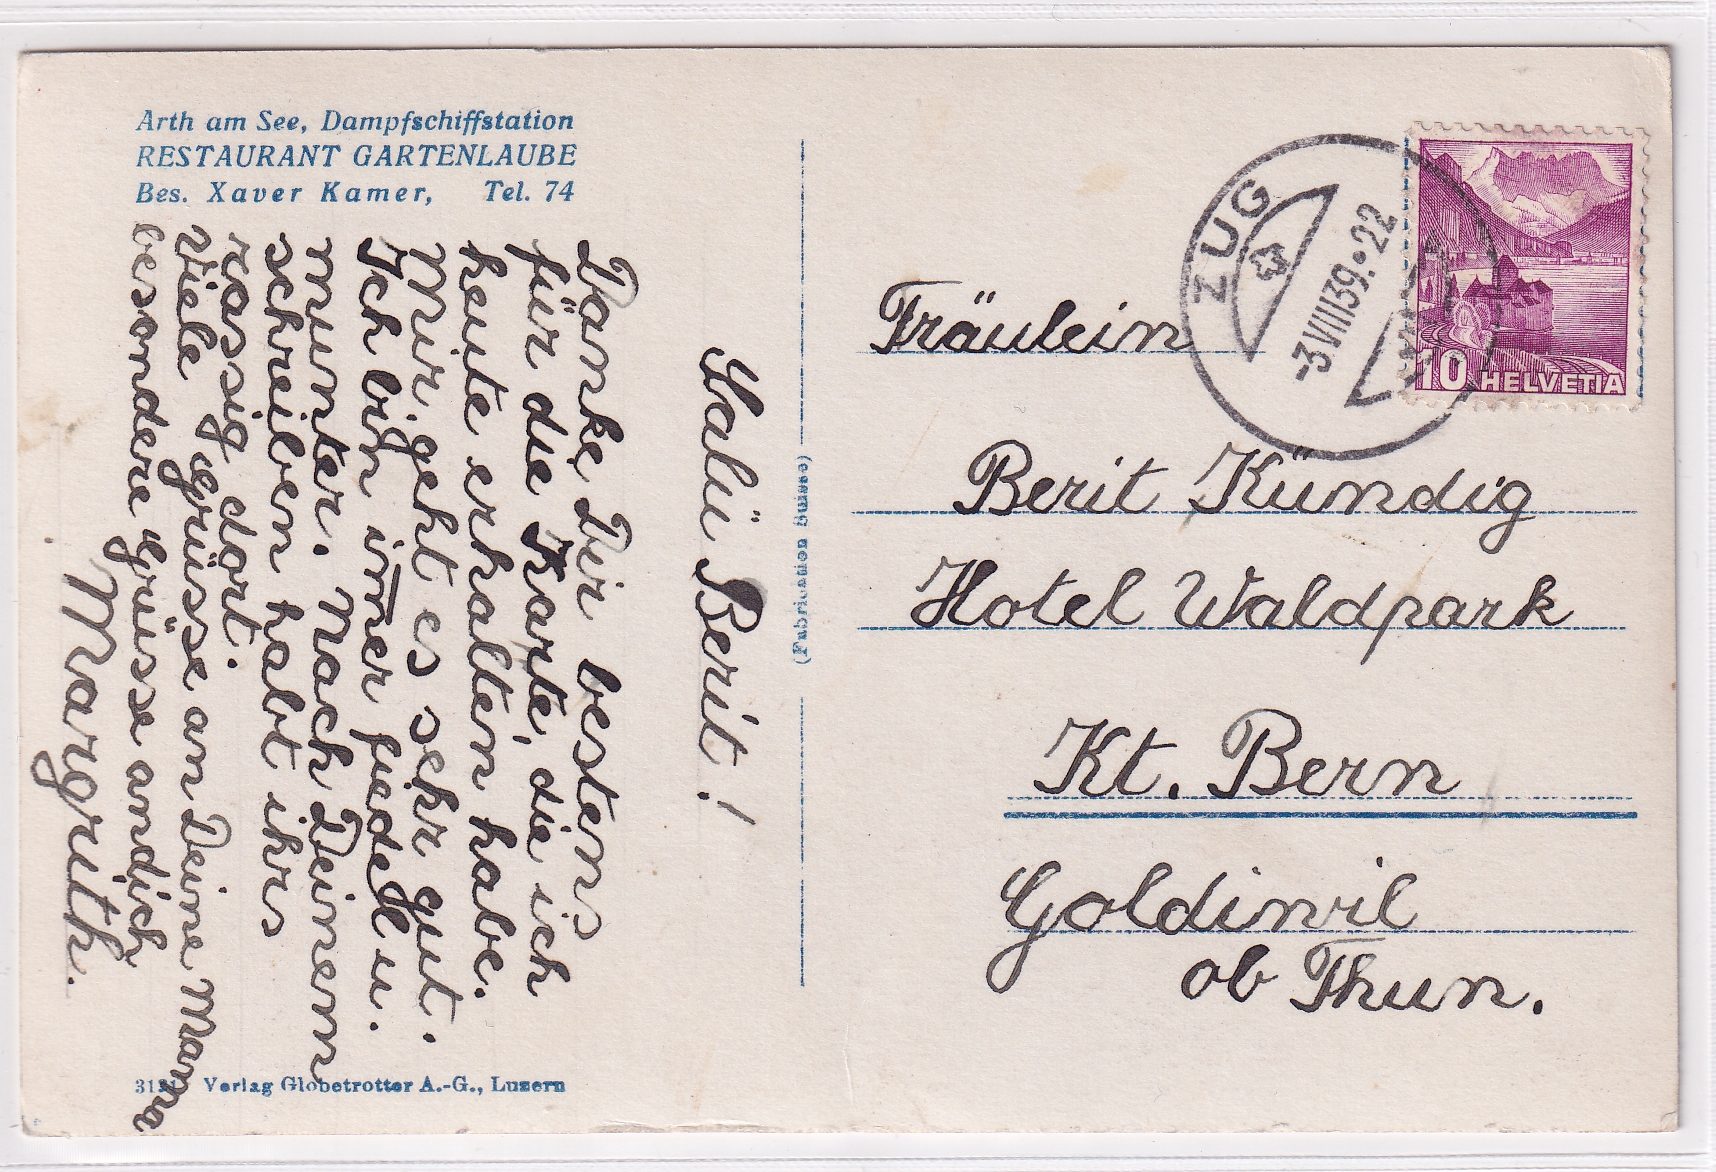 Arth am See, Dampfschiffstation
RESTAURANT GARTENLAUBE
Bes. Xaver Kamer, Tel. 74
Salü Berit!
Danke Dir bestens
für die Karte, die ich
heute erhalten habe.
Mir geht es sehr gut.
Ich bin im̅er fiedel u.
munter. Nach Deinem
schreiben habt ihrs
rassig dort.
Viele Grüsse an Deine Mama
besondere Grüsse an dich
Margrith.
Verlag Globetrotter A.-G., Luzern
(Fabrication Suisse)
ZUG
-3.VIII39.22
10 HELVETIA
Fräulein
Berit Kündig
Hotel Waldpark
Kt. Bern
Goldiwil
ob Thun.